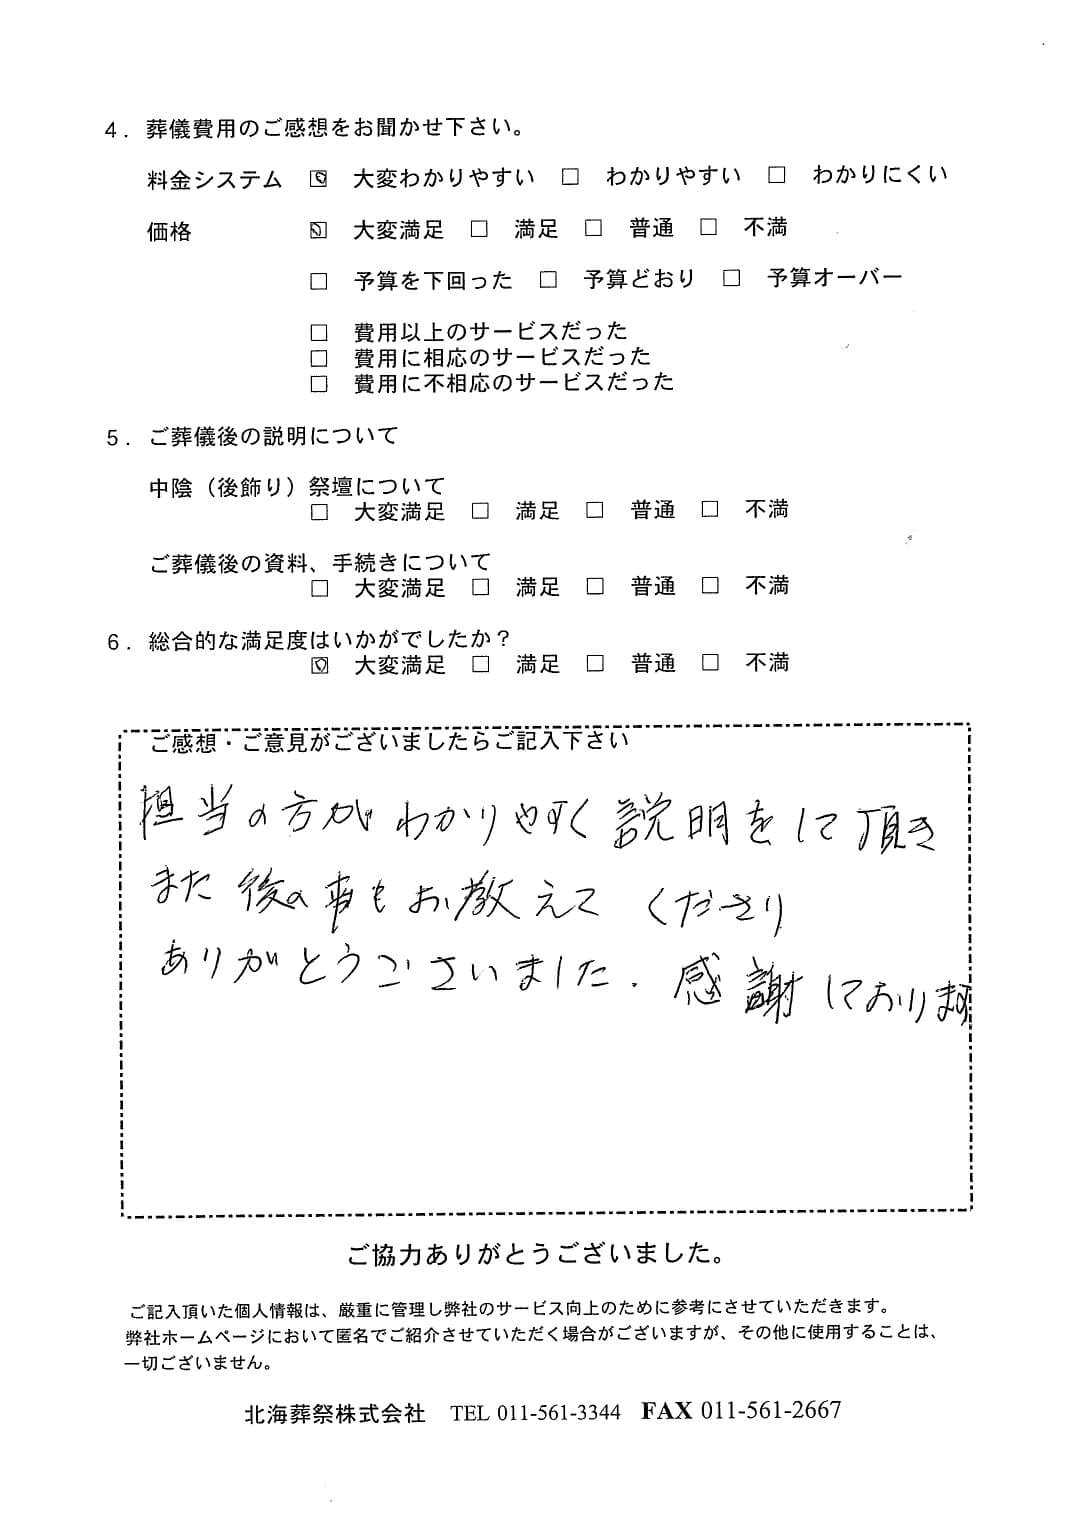 4．葬儀費用のご感想をお聞かせ下さい。
料金システム ☑ 大変わかりやすい □ わかりやすい □ わかりにくい
価格 ☑ 大変満足 □ 満足 □ 普通 □ 不満
□ 予算を下回った □ 予算どおり □ 予算オーバー
□ 費用以上のサービスだった
□ 費用に相応のサービスだった
□ 費用に不相応のサービスだった
5．ご葬儀後の説明について
中陰（後飾り）祭壇について
□ 大変満足 □ 満足 □ 普通 □ 不満
ご葬儀後の資料、手続きについて
□ 大変満足 □ 満足 □ 普通 □ 不満
6．総合的な満足度はいかがでしたか？
☑ 大変満足 □ 満足 □ 普通 □ 不満
ご感想・ご意見がございましたらご記入下さい
担当の方がわかりやすく説明をして頂き
また後の事もお教えてくださり
ありがとうございました．感謝しております
ご協力ありがとうございました。
ご記入頂いた個人情報は、厳重に管理し弊社のサービス向上のために参考にさせていただきます。
弊社ホームページにおいて匿名でご紹介させていただく場合がございますが、その他に使用することは、
一切ございません。
北海葬祭株式会社 TEL 011-561-3344 FAX 011-561-2667